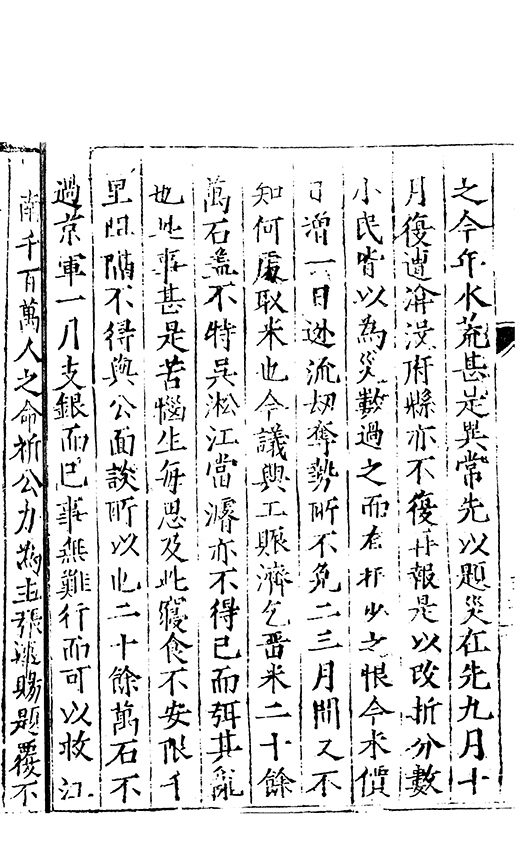 之今年水荒甚是異常先以題災在先九月十
月復遭渰没府縣亦不復再報是以改折分數
小民皆以為災數過之而有折少之恨今米價
日增一日逃流刼奪勢所不免二三月間又不
知何處取米也今議興工賑濟乞畱米二十餘
萬石蓋不特吳淞江當濬亦不得已而弭其亂
也此事甚是苦惱生每思及此寢食不安恨千
里阻隔不得與公面談所以也二十餘萬石不
過京軍一月支銀而已事無難行而可以救江
南千百萬人之命祈公力為主張速賜題覆不